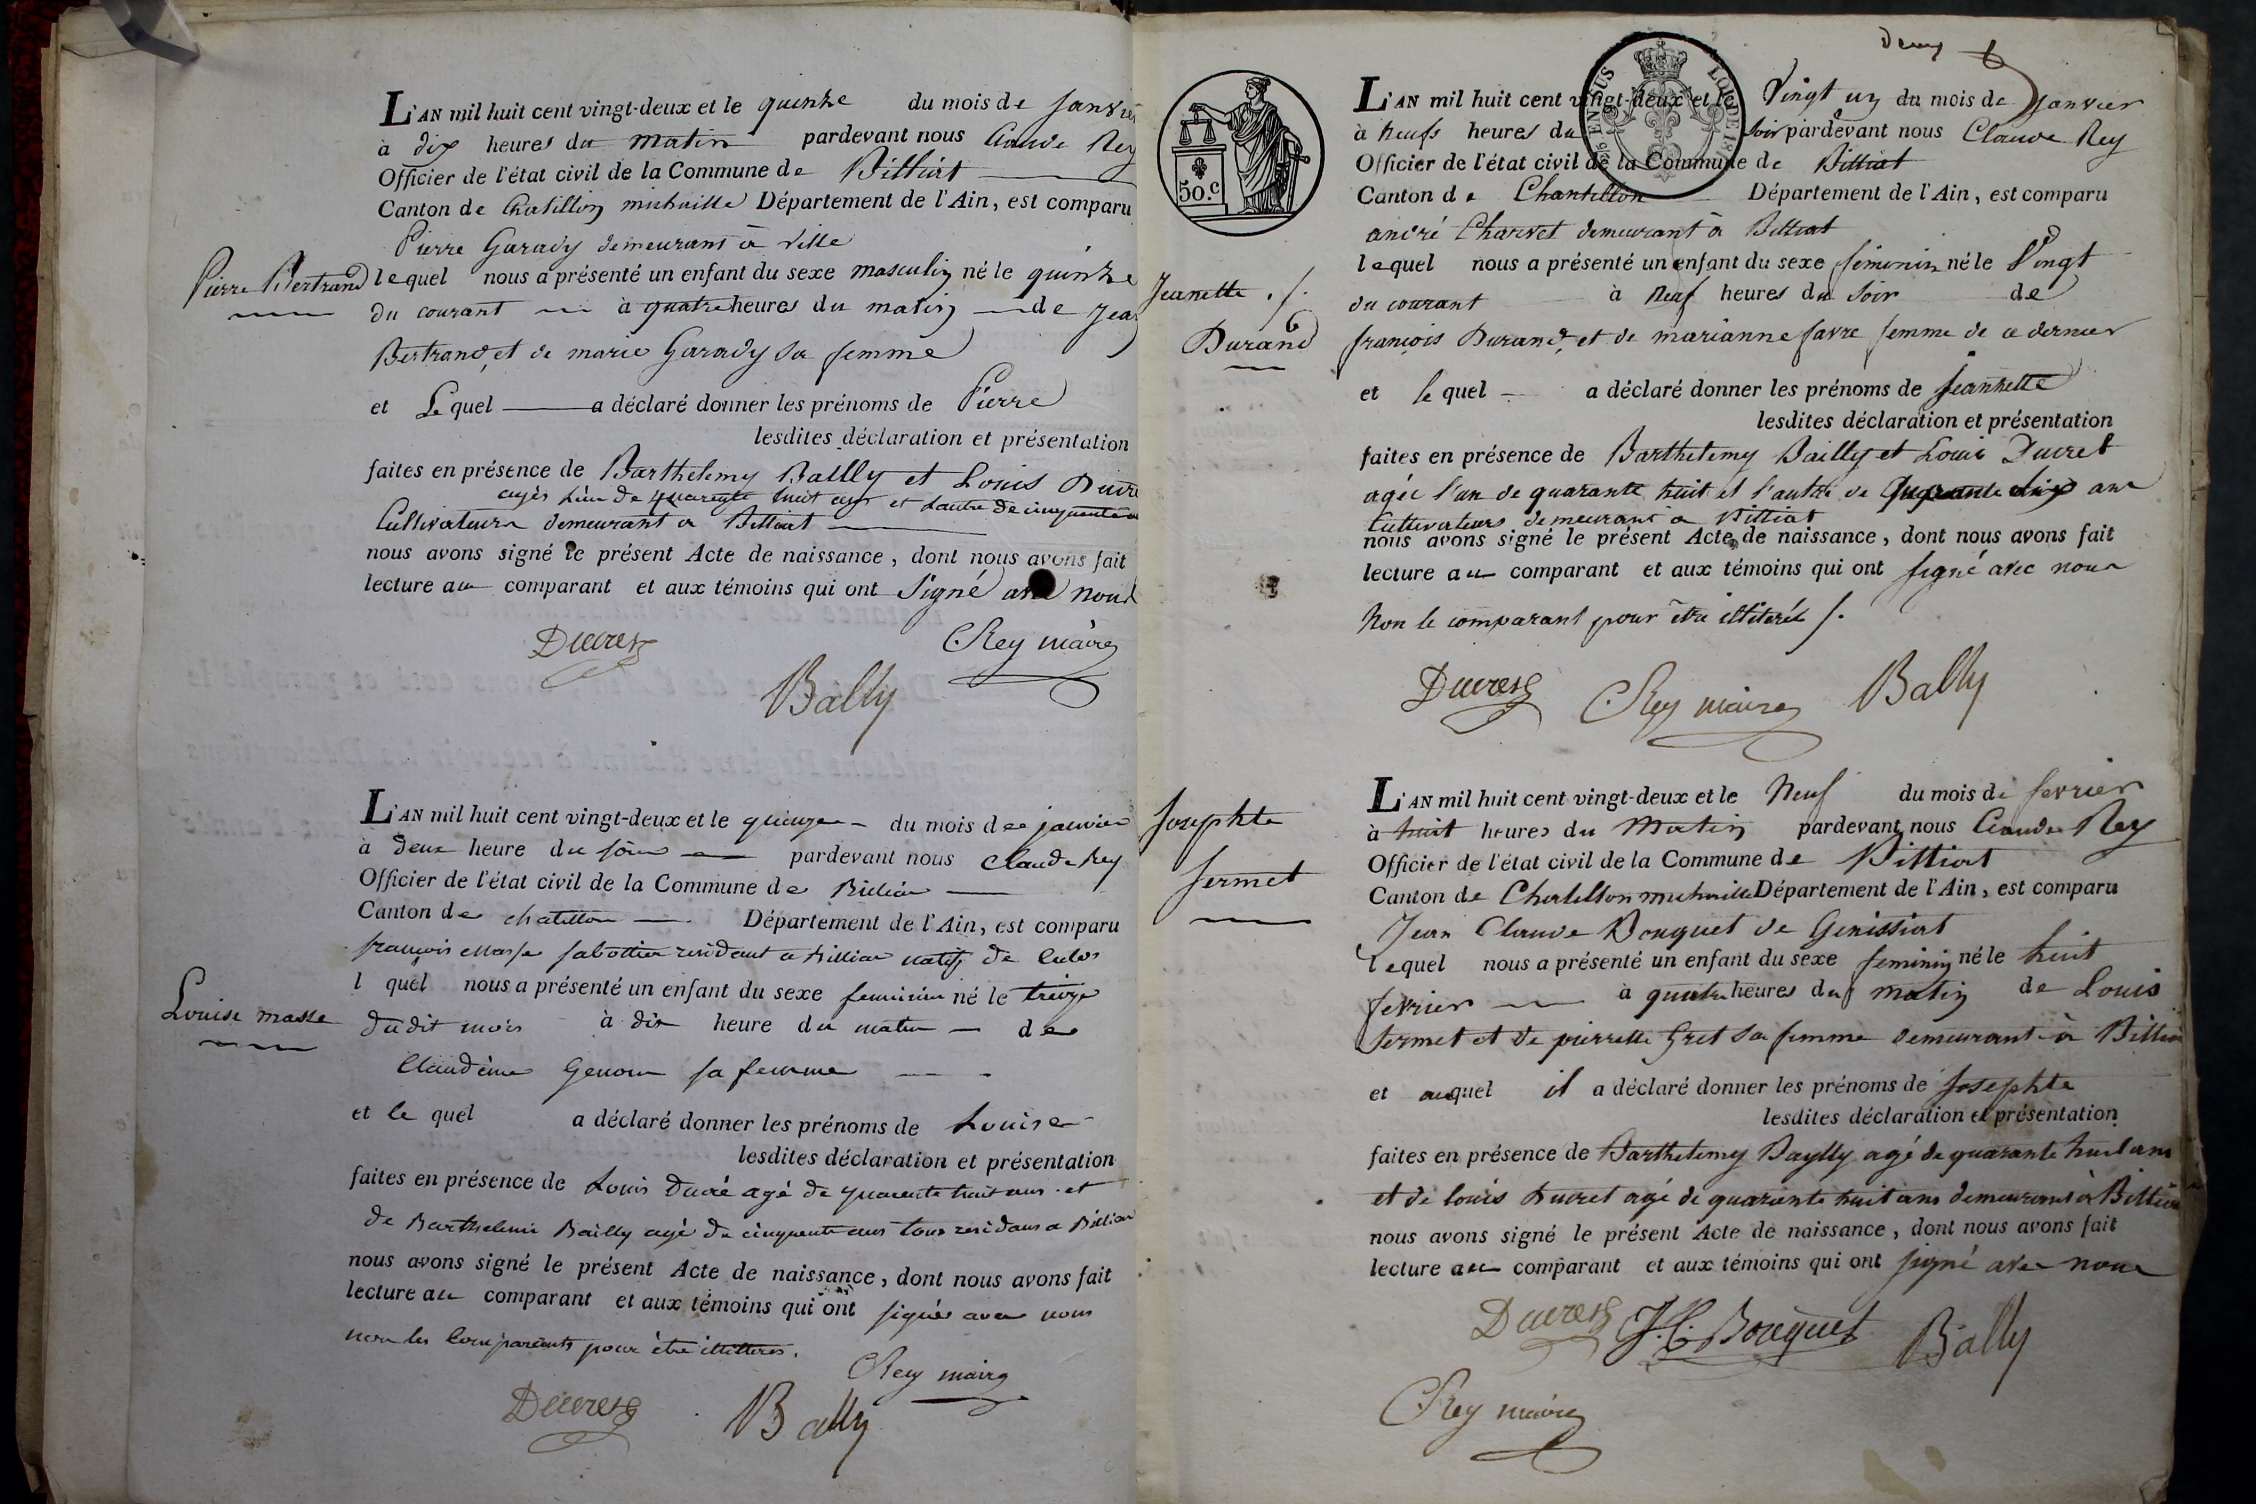 L'AN mil huit cent vingt-deux et le quinze du mois de Janvier
à dix heures du matin pardevant nous Claude Rey
Officier de l'état civil de la Commune de Billiat
Canton de Chatillon michaille Département de l'Ain, est comparu
Pierre Garady demeurant à Ville
Pierre Bertrand
lequel nous a présenté un enfant du sexe masculin né le quinze
du courant à quatre heures du matin de Jean
Bertrand, et de marie Garady sa femme
et Le quel a déclaré donner les prénoms de Pierre
lesdites déclaration et présentation
faites en présence de Barthelemy Bailly et Louis Ducret
agés l'un de quarente huit ans et l'autre de cinquante
Cultivateurs demeurant a Billiat
nous avons signé le présent Acte de naissance, dont nous avons fait
lecture au comparant et aux témoins qui ont signé avec nous
Ducret
Rey maire
Bally
L'AN mil huit cent vingt-deux et le quinze du mois de janvier
à deux heure du soir pardevant nous Claude Rey
Officier de l'état civil de la Commune de Billiat
Canton de chatillon Département de l'Ain, est comparu
françois Masse sabottier residant a billiat natif de
Louise masse
l quel nous a présenté un enfant du sexe feminin né le treize
dudit mois à dix heure du matin de
Claudine Genou sa femme
et le quel a déclaré donner les prénoms de Louise
lesdites déclaration et présentation
faites en présence de Louis Ducré agé de quarente huit ans et
de Barthelemi Bailly agé de cinquente ans tous residans a Billiat
nous avons signé le présent Acte de naissance, dont nous avons fait
lecture au comparant et aux témoins qui ont signés avec nous
non les Comparants pour être illitteres.
Rey maire
Ducret
Bally
deux
50.c
L'AN mil huit cent vingt-deux et le Vingt un du mois de Janvier
à neufs heures du soir pardevant nous Claude Rey
Officier de l'état civil de la Commune de Billiat
Canton de Chantillon Département de l'Ain, est comparu
andré Charvet demeurant à Billiat
lequel nous a présenté un enfant du sexe feminin né le Vingt
Jeanette
Durand
du courant à neuf heures du soir de
françois Durand, et de marianne favre femme de ce dernier
et le quel a déclaré donner les prénoms de Jeannette
lesdites déclaration et présentation
faites en présence de Barthelemy Bailly et Louis Ducret
agée l'un de quarante huit et l'autre de ans
Cultivateurs demeurant a Billiat
nous avons signé le présent Acte de naissance, dont nous avons fait
lecture au comparant et aux témoins qui ont signé avec nous
Non le comparant pour être illiteré
Ducret
Rey maire
Bally
L'AN mil huit cent vingt-deux et le Neuf du mois de fevrier
à huit heures du Matin pardevant nous Claude Rey
Officier de l'état civil de la Commune de Billiat
Canton de Chatillon michaille Département de l'Ain, est comparu
Jean Claude Bouquet de Genissiat
Josephte
fermet
lequel nous a présenté un enfant du sexe feminin né le huit
fevrier à quatre heures du matin de Louis
fermet et de pierrette Gret sa femme demeurant à Billiat
et auquel il a déclaré donner les prénoms de Josephte
lesdites déclaration et présentation
faites en présence de Barthelemy Baylly agé de quarante huit ans
et de louis Ducret agé de quarante huit ans demeurant à Billiat
nous avons signé le présent Acte de naissance, dont nous avons fait
lecture au comparant et aux témoins qui ont signé avec nous
Ducret
J. C. Bouquet
Bally
Rey maire